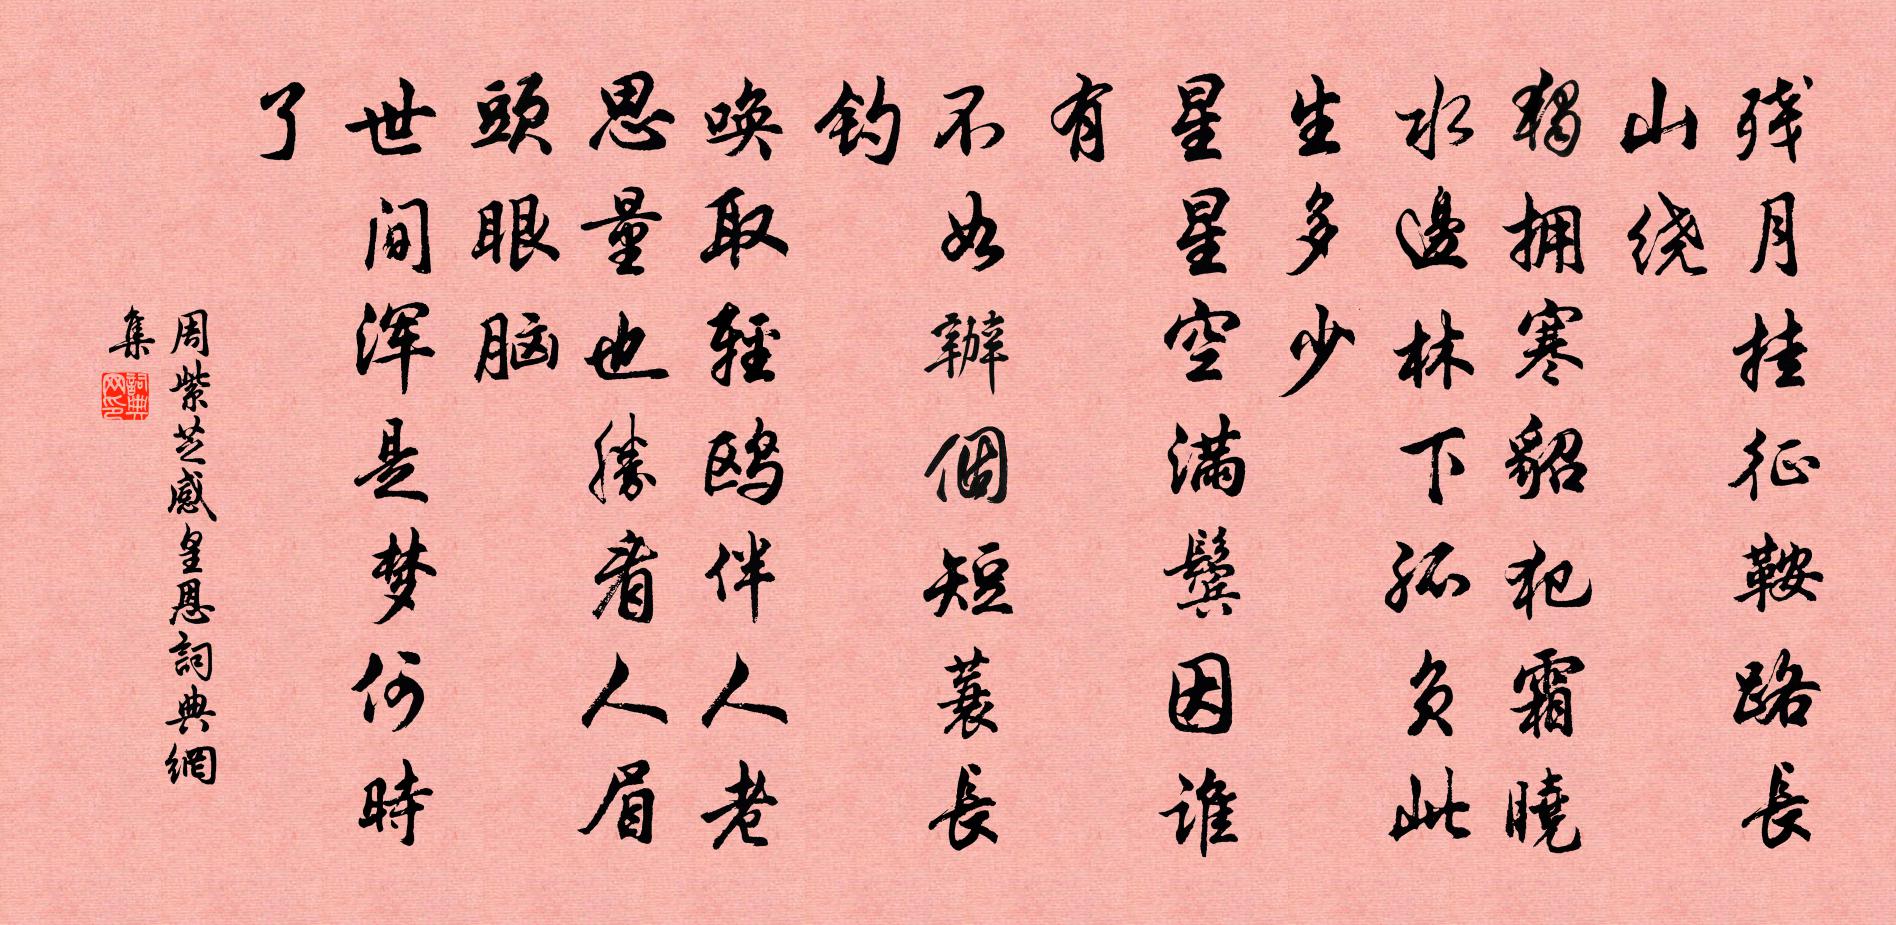 残月挂征鞍路長
山绕
独拥寒貂犯霜曉
水邊林下孤负此
生多少
星星空满鬓因谁
有
不如辦個短蓑長
钓
唤取輕鸥伴人老
思量也勝看人眉
頭眼脑
世间浑是梦何時
了
周紫芝感皇恩詞典網
集
詞典
网印